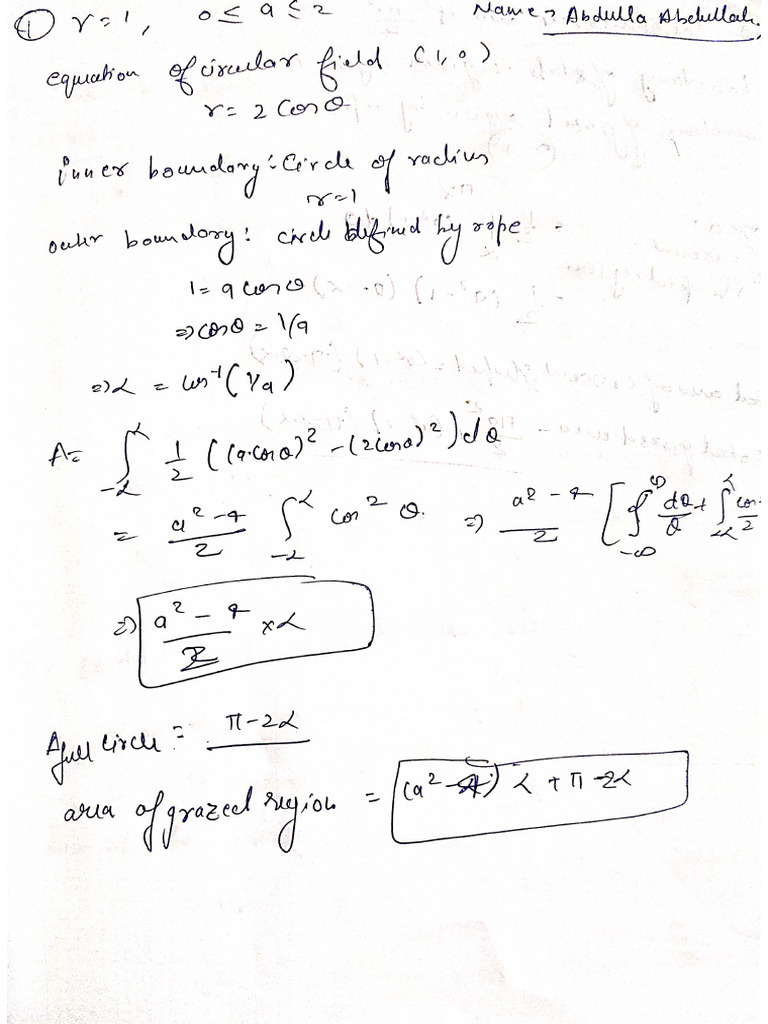 ① r=1, 0 ≤ a ≤ 2 Name → Abdulla Abdullah.
equation of circular field (1,0)
r= 2 Cos θ
inner boundary: Circle of radius
r=1
outer boundary: circle defined by rope -
1= a cos θ
⇒ cos θ = 1/a
⇒ α = cos⁻¹(1/a)
A= ∫_{-α}^{α} 1/2 ((a·cos θ)² - (2cos θ)²) dθ
= (a²-4)/2 ∫_{-α}^{α} cos² θ. ⇒ (a²-4)/2 [
⇒ (a²-4)/2 × α
A full circle = π-2α
area of grazed region = (a²-4) α + π -2α